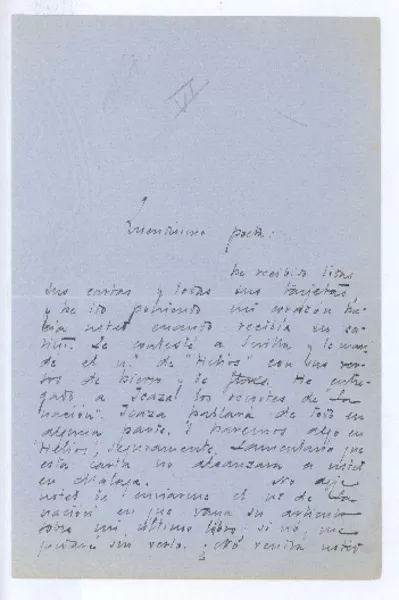 VI
poeta:
he recibido todas
sus cartas y todas sus tarjetas,
y he ido poniendo mi corazón ha-
cia usted cuando recibía su ca-
riño. Le contesté a Sevilla y le man-
dé el nº de "Helios" con sus ver-
sos de hierro y de flores. He entre-
gado a los recortes de "La
Nación". hablará de todo en
alguna parte. Y haremos algo en
"Helios", seguramente. Lamentaría que
esta carta no alcanzara a usted
en Málaga. No deje
usted de enviarme el nº de "La
Nación" en que vaya su artículo
sobre mi último libro; si no, me
quedaré sin verlo. ¿No vendrá usted